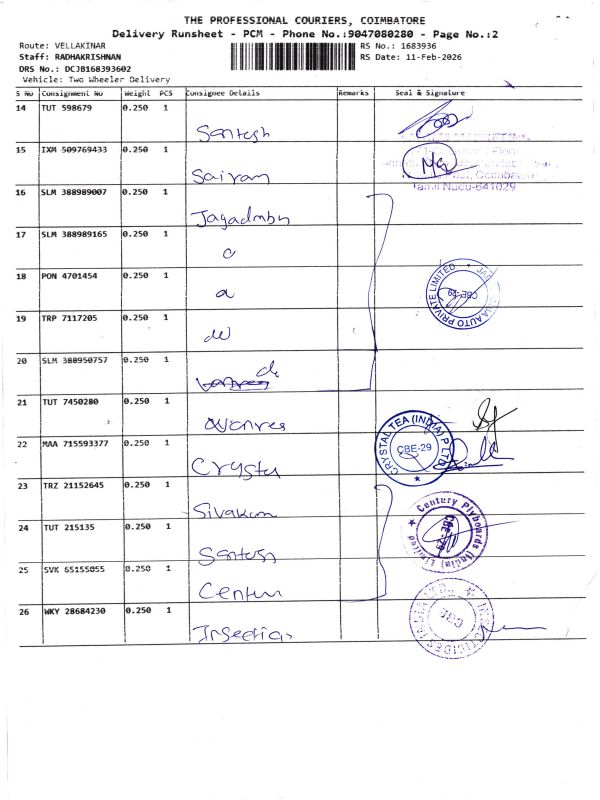 THE PROFESSIONAL COURIERS, COIMBATORE
Delivery Runsheet - PCM - Phone No.:9047080280 - Page No.:2
Route: VELLAKINAR
RS No.: 1683936
Staff: RADHAKRISHNAN
RS Date: 11-Feb-2026
DRS No.: DCJB168393602
Vehicle: Two Wheeler Delivery
S No Consignment No Weight PCS Consignee Details Remarks Seal & Signature
14 TUT 598679 0.250 1
Santosh
15 IXM 509769433 0.250 1
Sairam
Tamil Nadu-641029
16 SLM 388989007 0.250 1
Jagadmbn
17 SLM 388989165 0.250 1
18 PON 4701454 0.250 1
AUTO PRIVATE LIMITED
CBE-29
19 TRP 7117205 0.250 1
20 SLM 388950757 0.250 1
do
21 TUT 7450280 0.250 1
22 MAA 715593377 0.250 1
Crysta
CRYSTAL TEA (INDIA) P LTD
CBE-29
23 TRZ 21152645 0.250 1
Sivakum
24 TUT 215135 0.250 1
Santosh
Century Plyboards (India) Limited
CBE-29
25 SVK 65155055 0.250 1
Centur
26 WKY 28684230 0.250 1
CBE